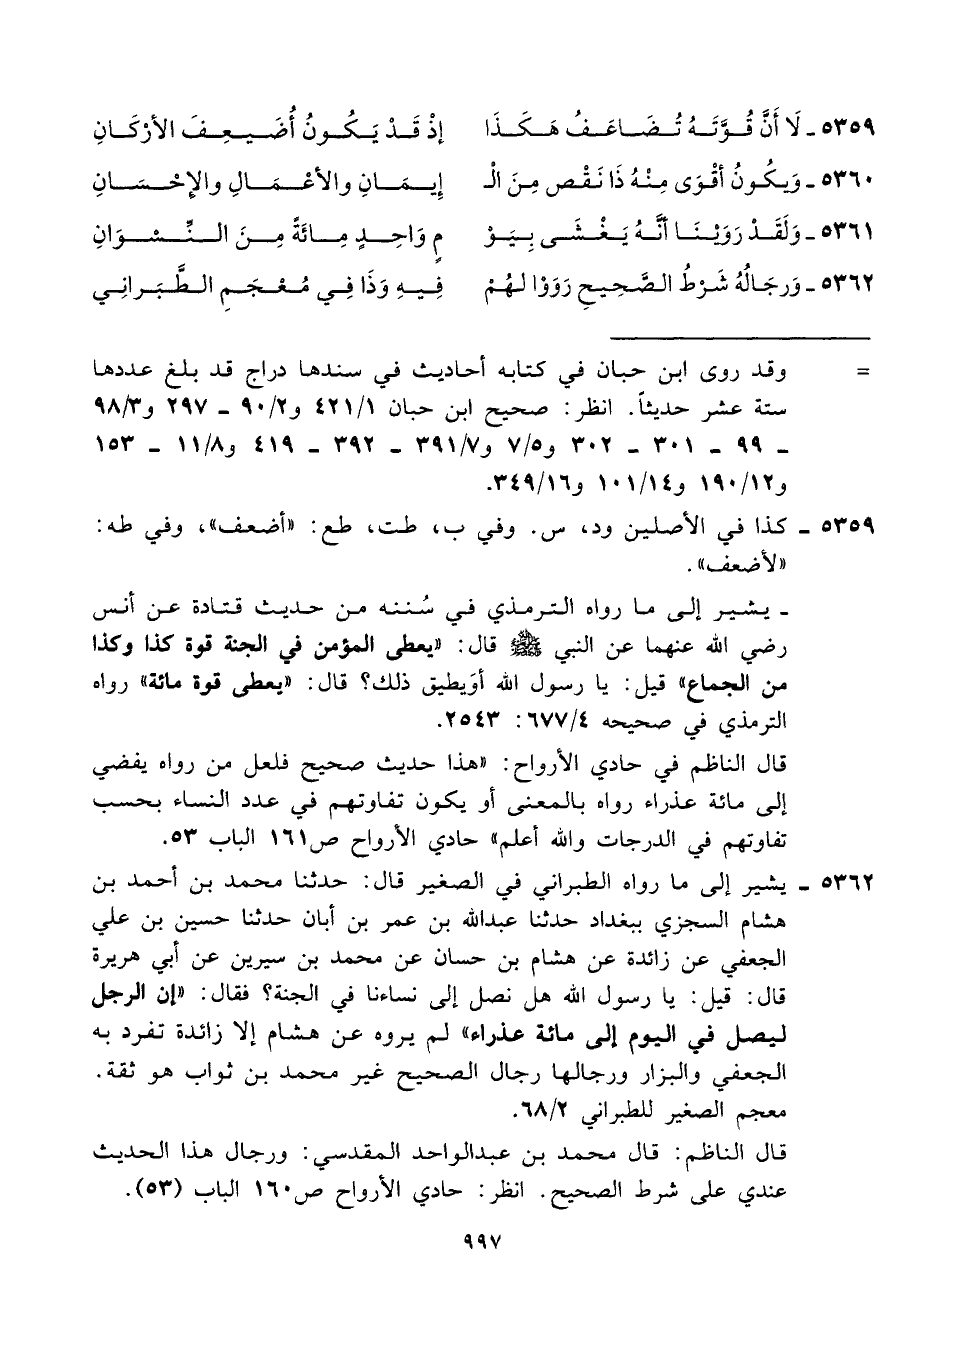 ٥٣٥٩ ـ لَا أَنَّ قُوَّتَهُ تُضَاعَفُ هَكَذَا إذْ قَدْ يَكُونُ أُضَيعِفَ الأرْكَانِ
٥٣٦٠ ـ وَيكُونُ أقْوَى مِنْهُ ذَا نَقْصٍ مِنَ الْـ إيمَانِ والأعْمَالِ والإحْسَانِ
٥٣٦١ ـ وَلَقَدْ رَوَيْنَا أنَّهُ يَغْشَى بِيَوْ مٍ وَاحِدٍ مِائَةً مِنَ النِّسْوَانِ
٥٣٦٢ ـ وَرِجَالُهُ شَرْطُ الصَّحِيحِ رَوَوْا لهُمْ فِيهِ وَذَا فِي مُعْجَمِ الطَّبَرانِي
= وقد روى ابن حبان في كتابه أحاديث في سندها دراج قد بلغ عددها
ستة عشر حديثاً. انظر: صحيح ابن حبان ٤٢١/١ و٩٠/٢ ـ ٢٩٧ و٩٨/٣
ـ ٩٩ ـ ٣٠١ ـ ٣٠٢ و٧/٥ و٣٩١/٧ ـ ٣٩٢ ـ ٤١٩ و١١/٨ ـ ١٥٣
و١٩٠/١٢ و١٠١/١٤ و٣٤٩/١٦.
٥٣٥٩ ـ كذا في الأصلين ود، س. وفي ب، طت، طع: «أضعف»، وفي طه:
«لأضعف».
ـ يشير إلى ما رواه الترمذي في سُننه من حديث قتادة عن أنس
رضي الله عنهما عن النبي ﷺ قال: «يعطى المؤمن في الجنة قوة كذا وكذا
من الجماع» قيل: يا رسول الله أوَيطيق ذلك؟ قال: «يعطى قوة مائة» رواه
الترمذي في صحيحه ٦٧٧/٤: ٢٥٤٣.
قال الناظم في حادي الأرواح: «هذا حديث صحيح فلعل من رواه يفضي
إلى مائة عذراء رواه بالمعنى أو يكون تفاوتهم في عدد النساء بحسب
تفاوتهم في الدرجات والله أعلم» حادي الأرواح ص١٦١ الباب ٥٣.
٥٣٦٢ ـ يشير إلى ما رواه الطبراني في الصغير قال: حدثنا محمد بن أحمد بن
هشام السجزي ببغداد حدثنا عبدالله بن عمر بن أبان حدثنا حسين بن علي
الجعفي عن زائدة عن هشام بن حسان عن محمد بن سيرين عن أبي هريرة
قال: قيل: يا رسول الله هل نصل إلى نساءنا في الجنة؟ فقال: «إن الرجل
ليصل في اليوم إلى مائة عذراء» لم يروه عن هشام إلا زائدة تفرد به
الجعفي والبزار ورجالها رجال الصحيح غير محمد بن ثواب هو ثقة.
معجم الصغير للطبراني ٦٨/٢.
قال الناظم: قال محمد بن عبدالواحد المقدسي: ورجال هذا الحديث
عندي على شرط الصحيح. انظر: حادي الأرواح ص١٦٠ الباب (٥٣).
٩٩٧